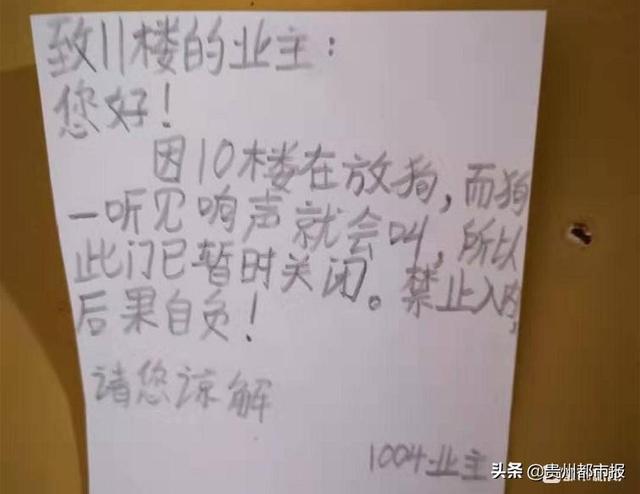 致11楼的业主：
您好！
因10楼在放狗，而狗
一听见响声就会叫，所以
此门已暂时关闭。禁止入内，
后果自负！
请您谅解
1004业主
头条 @贵州都市报